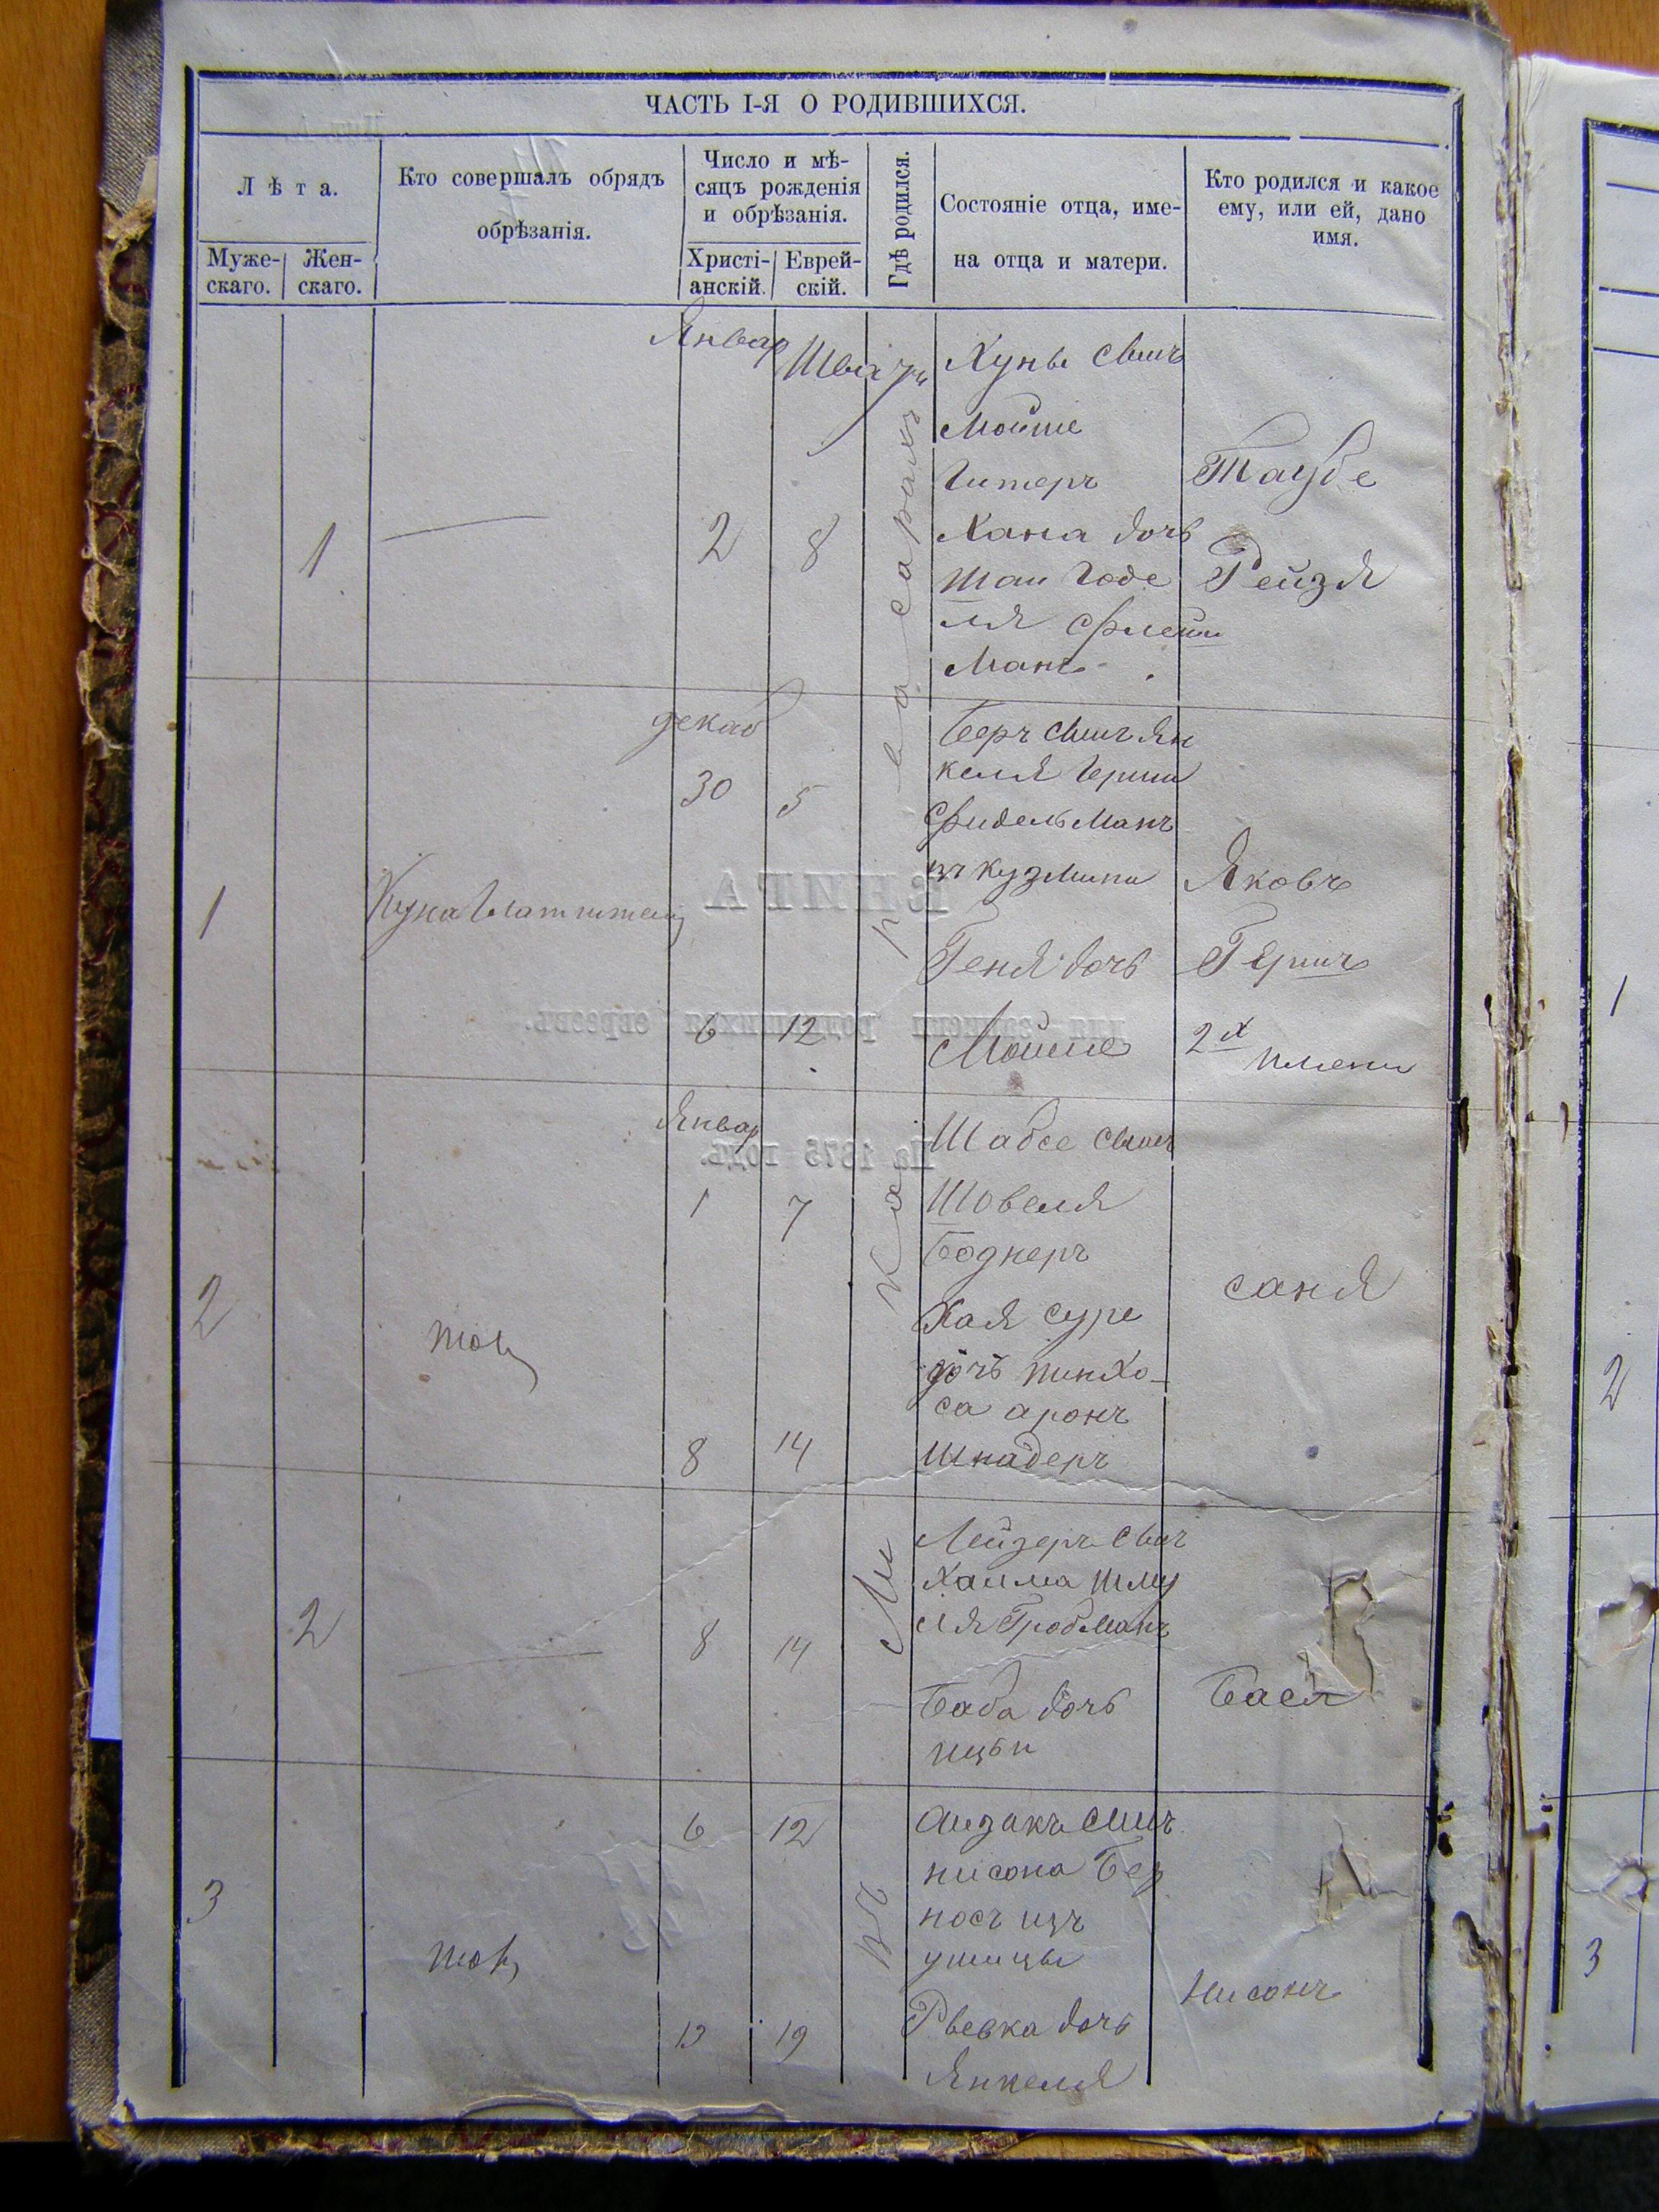 ЧАСТЬ I-Я О РОДИВШИХСЯ.
Лѣта.
Муже-
скаго.
Жен-
скаго.
Кто совершалъ обрядъ
обрѣзанія.
Число и мѣ-
сяцъ рожденія
и обрѣзанія.
Христі-
анскій.
Еврей-
скій.
Гдѣ родился.
Состояніе отца, име-
на отца и матери.
Кто родился и какое
ему, или ей, дано
имя.
1
Январ
2
8
Хуны сынъ
Мойше
Гитеръ
Хана дочь
Маи Годе
ля Флейш
Манъ
Таубе
Рейзя
1
декаб
30
5
6
12
Беръ сынъ Ян
келя Герша
Фидельманъ
Геня дочь
Мойше
Яковъ
Гершъ
2х
имени
2
Январ
1
7
8
14
Шабсе сынъ
Шовеля
Боднеръ
Хая суре
дочь пинхо-
са аронъ
Шнадеръ
саня
2
8
14
Лейзеръ сынъ
Хаима Шму
ля Гробманъ
Баба дочь
Бася
3
6
12
13
19
Аизакъ сынъ
нисона Бер
носъ изъ
ушицы
Рвевка дочь
Янкеля
Нисонъ
КНИГА
для записки родившихся евреевъ.
На 1875 годъ.
1
2
3